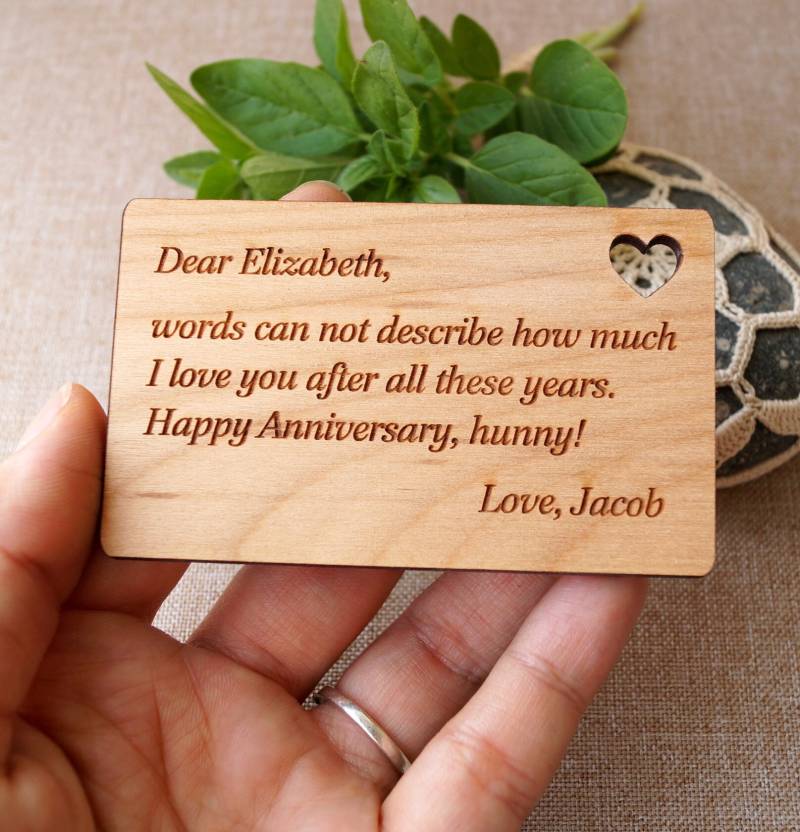 Dear Elizabeth,
words can not describe how much
I love you after all these years.
Happy Anniversary, hunny!
Love, Jacob